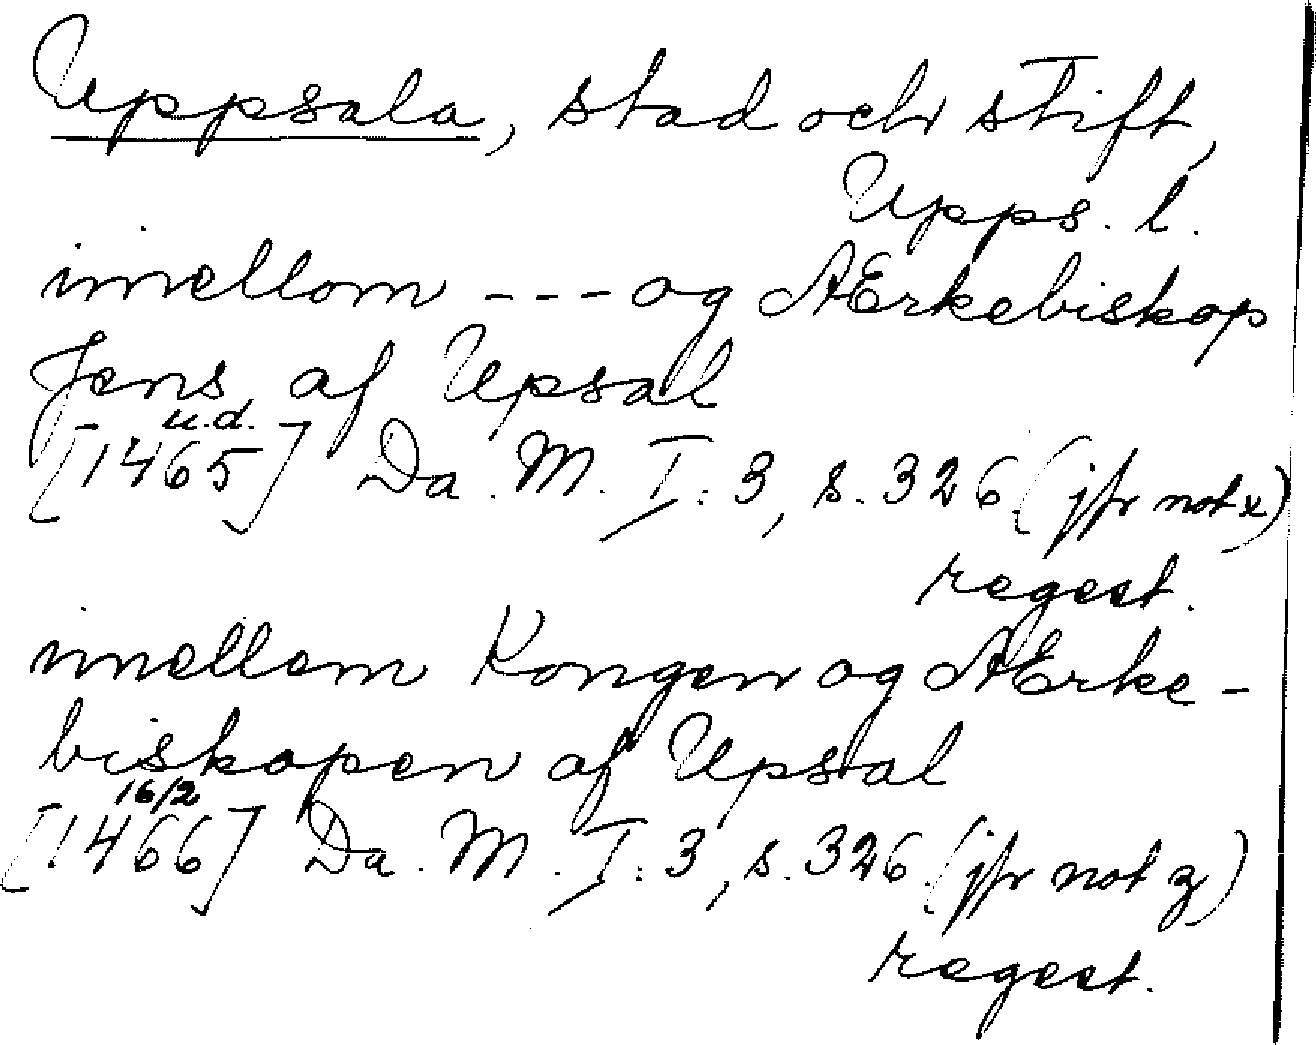 Uppsala, stad och stift,
Upps. l.
imellom --- og AErkebiskop
Jens af Upsal
u.d.
[1465] Da. M. I: 3, s. 326 (jfr not x)
regest.
imellem Kongen og AErke-
biskopen af Upsal
16/2
[1466] Da. M. I: 3, s. 326 (jfr not z)
regest.